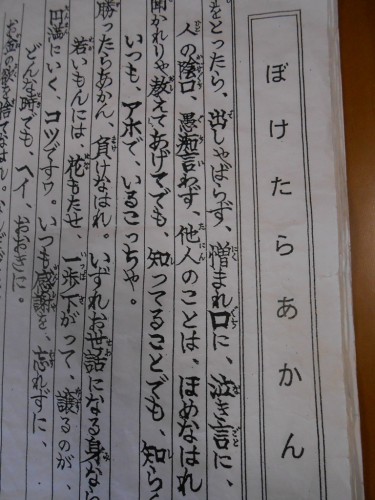 ぼけたらあかん
をとったら、出しゃばらず、憎まれ口に、泣き言に、
人の陰口、愚痴言わず、他人のことは、ほめなはれ
聞かれりゃ教えてあげてでも、知ってることでも、知らん
いつも、アホで、いるこっちゃ。
勝ったらあかん、負けなはれ。いずれお世話になる身なら
若いもんには、花もたせ、一歩下がって、譲るのが、
円満にいく、コツですワ。いつも感謝を、忘れずに、
どんな時でも、ヘイ、おおきに。